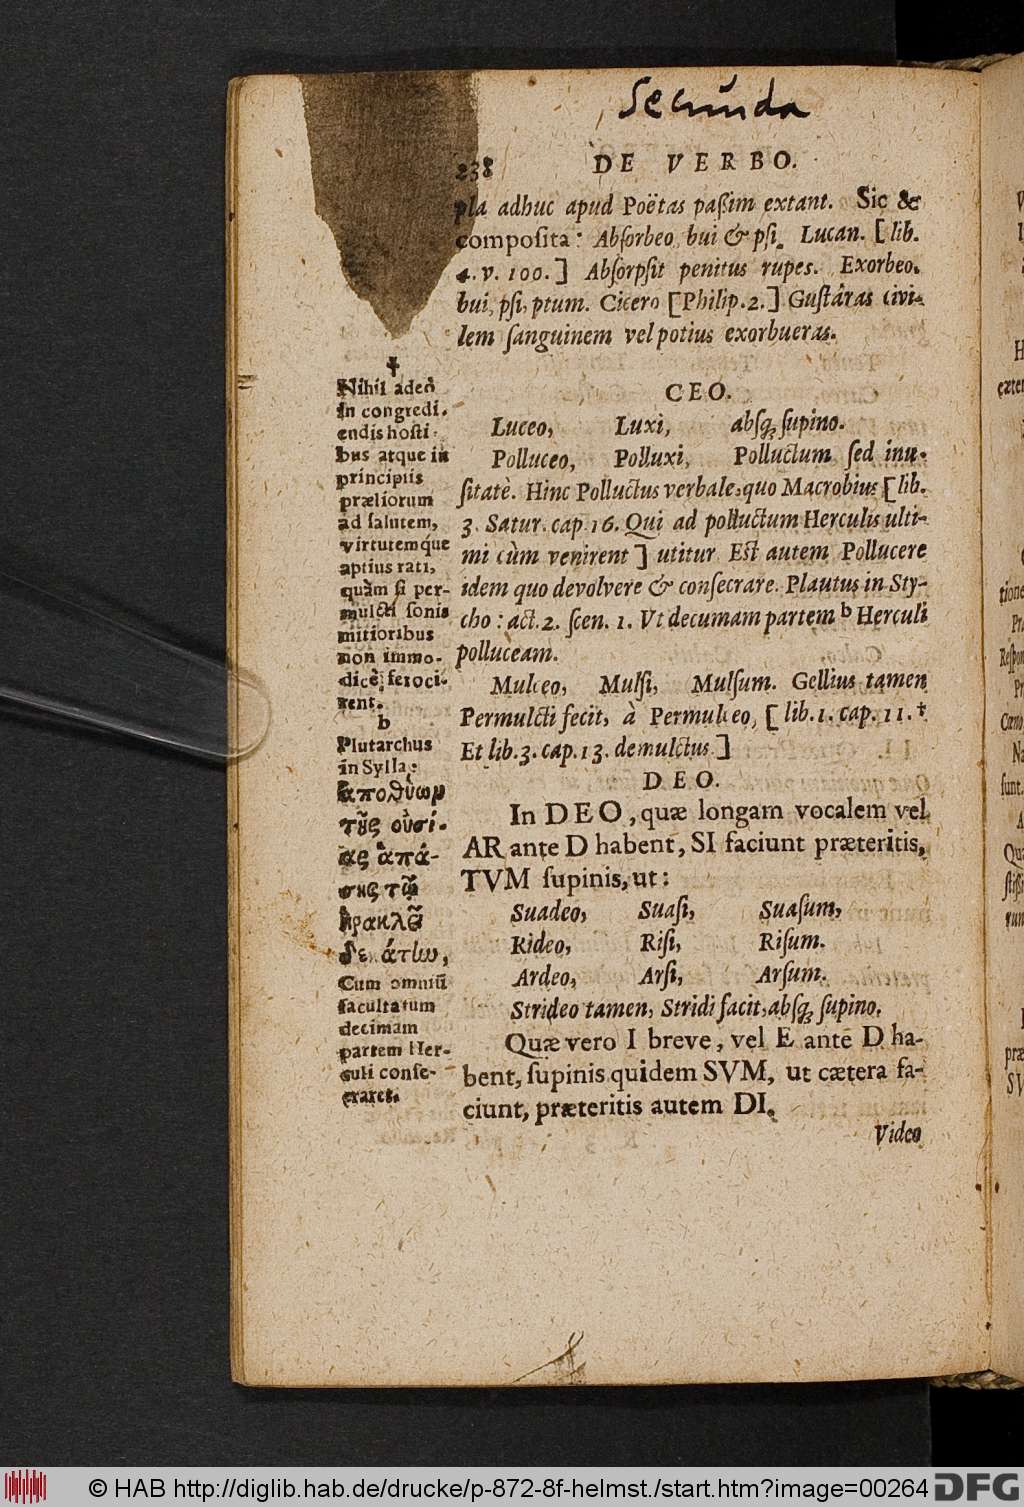 Secunda
238 DE VERBO.
pla adhuc apud Poëtas paßim extant. Sic &
composita: Absorbeo, bui & psi. Lucan. [lib.
4. v. 100.] Absorpsit penitus rupes. Exorbeo,
bui, psi, ptum. Cicero [Philip. 2.] Gustâras civi-
lem sanguinem vel potius exorbueras.
CEO.
Luceo, Luxi, absq; supino.
Polluceo, Polluxi, Polluctum sed inu-
sitatè. Hinc Polluctus verbale, quo Macrobius [lib.
3. Satur. cap. 16. Qui ad polluctum Herculis ulti-
mi cùm venirent] utitur. Est autem Pollucere
idem quo devolvere & consecrare. Plautus in Sty-
cho: act. 2. scen. 1. Vt decumam partem b Herculi
polluceam.
Mulceo, Mulsi, Mulsum. Gellius tamen
Permulcti fecit, à Permulceo, [lib. 1. cap. 11. †
Et lib. 3. cap. 13. demulctus.]
DEO.
In DEO, quæ longam vocalem vel
AR ante D habent, SI faciunt præteritis,
TVM supinis, ut:
Suadeo, Suasi, Suasum,
Rideo, Risi, Risum.
Ardeo, Arsi, Arsum.
Strideo tamen, Stridi facit, absq; supino.
Quæ vero I breve, vel E ante D ha-
bent, supinis quidem SVM, ut cætera fa-
ciunt, præteritis autem DI.
Video
†
Nihil adeò
in congredi-
endis hosti-
bus atque in
principiis
præliorum
ad salutem,
virtutemq́ue
aptius rati,
quàm si per-
mulcti sonis
mitioribus
non immo-
dicè feroci-
rent.
b
Plutarchus
in Sylla:
ἀποθύων
τῆς οὐσί-
ας ἁπά-
σης τῷ
Ἡρακλεῖ
δεκάτην,
Cum omniū
facultatum
decimam
partem Her-
culi conse-
craret.
© HAB http://diglib.hab.de/drucke/p-872-8f-helmst./start.htm?image=00264 DFG